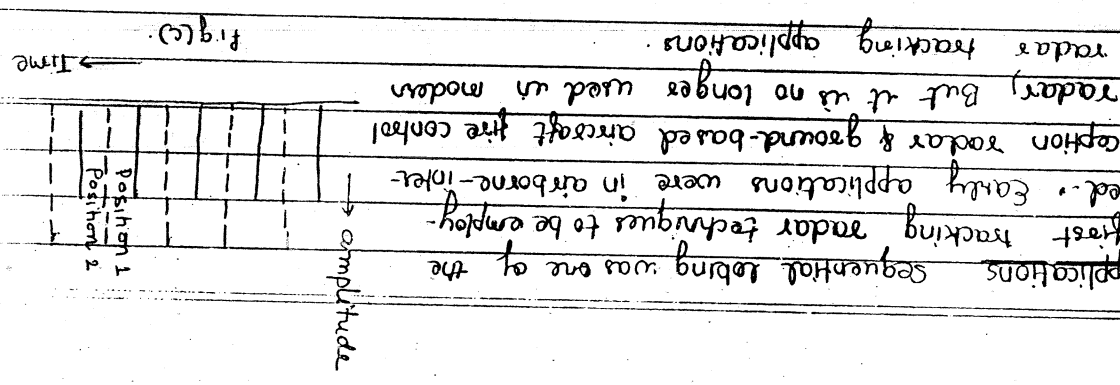 pplications Sequential lobing was one of the
first tracking radar techniques to be employ-
ed. Early applications were in airborne-inter-
ception radar & ground-based aircraft fire control
radar, But it is no longer used in modern
radar tracking applications.
amplitude
Position 1
Position 2
Time
Fig(c).